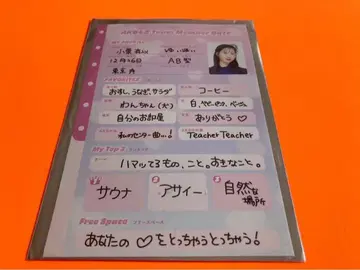 AKB48 Team Member Data
小栗有以 ゆいゆい
12月26日 AB型
東京都
FAVORITES
おすし、うなぎ、サラダ コーヒー
わんちゃん(犬) 白、ベビーピンク、ベージュ
自分のお部屋 ありがとう♡
私のセンター曲…! Teacher Teacher
My Top 3
ハマッてるもの、こと。好きなこと。
1 サウナ 2 アサイー 3 自然な場所
Free Space フリースペース
あなたの♡をとっちゃうとっちゃう!